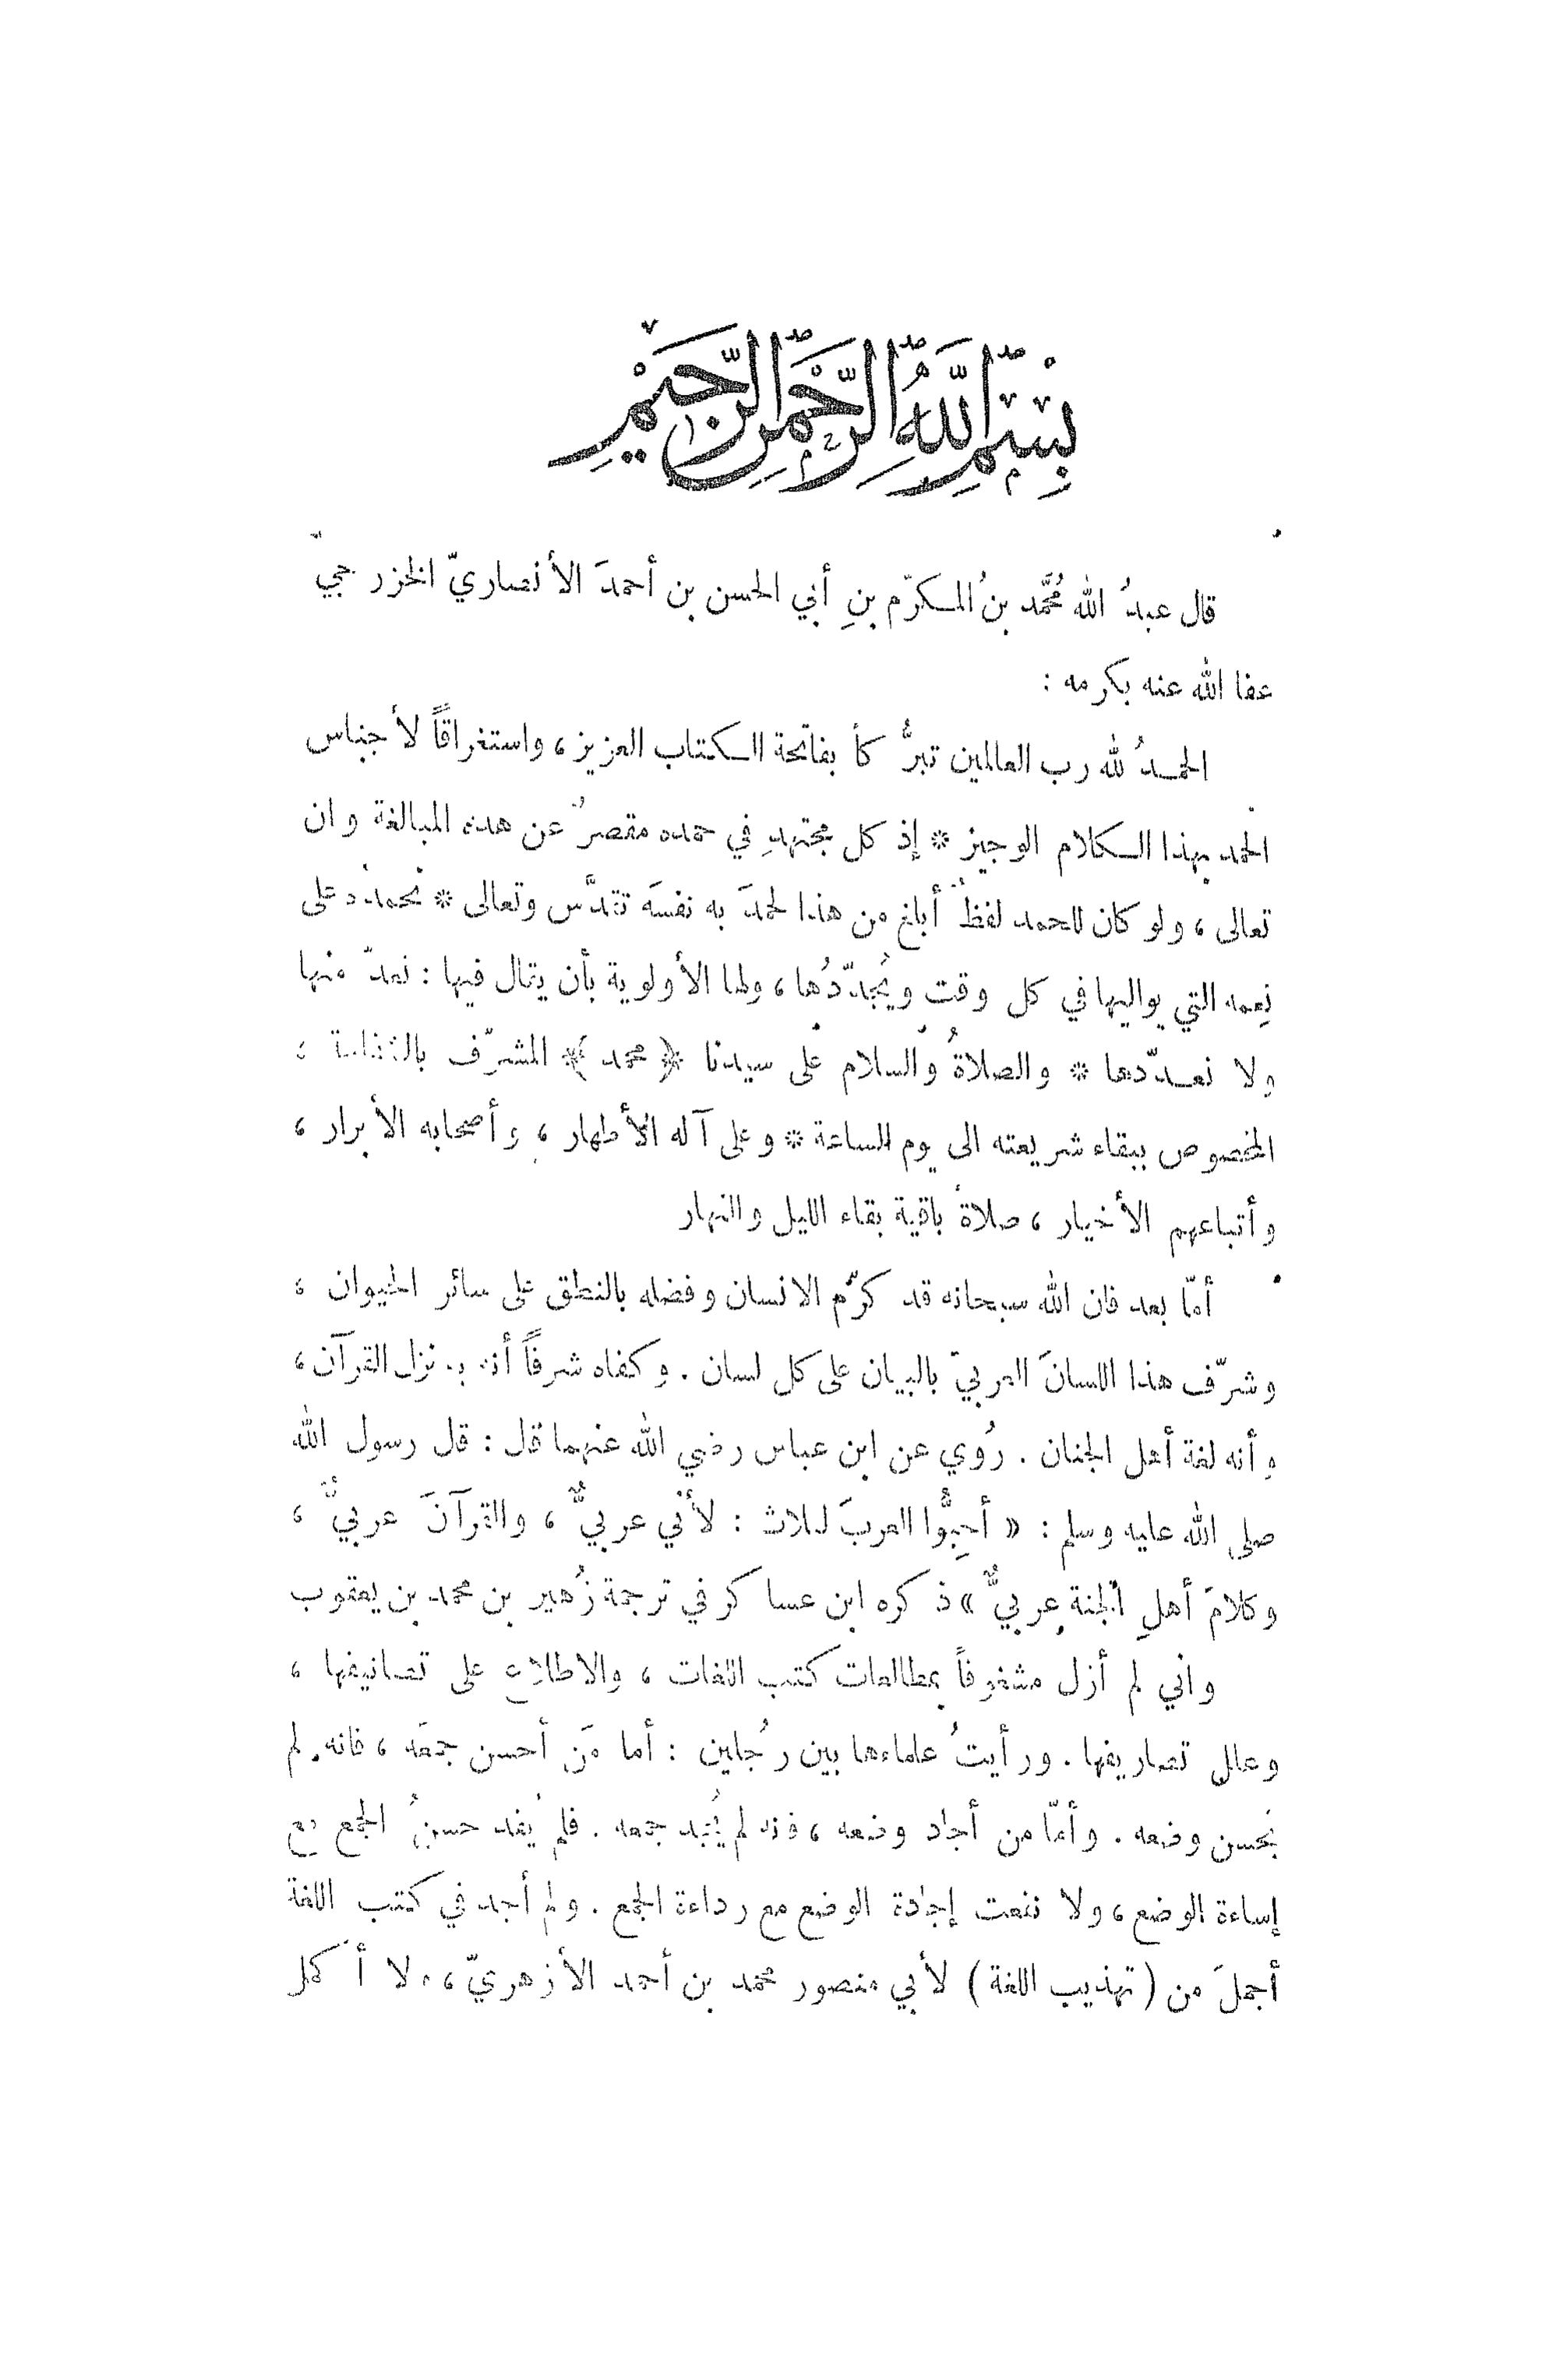 بِسْمِ اللَّهِ الرَّحْمَٰنِ الرَّحِيمِ
قال عبدُ الله مُحَمَّد بنُ المكرّم بنِ أبي الحسن بن أحمدَ الأنصاريّ الخزرجيّ
عفا الله عنه بكرمه :
الحمدُ لله رب العالمين تبرُّكاً بفاتحة الكتاب العزيز ، واستغراقاً لأجناس
الحمد بهذا الكلام الوجيز * إذ كل مجتهدِ في حمده مقصرٌ عن هذه المبالغة وان
تعالى ، ولو كان للحمد لفظٌ أبلغ من هذا لحمدَ به نفسَه تقدَّس وتعالى * نحمده على
نِعمه التي يواليها في كل وقت ويُجدّدُها ، ولها الأولوية بأن يقال فيها : نعدّ منها
ولا نعدّدها * والصلاةُ والسلام على سيدنا ﴿ محمد ﴾ المشرّف بالشفاعة ،
المخصوص ببقاء شريعته الى يوم الساعة * وعلى آله الأطهار ، وأصحابه الأبرار ،
وأتباعهم الأخيار ، صلاةً باقية بقاء الليل والنهار
أمّا بعد فان الله سبحانه قد كرّم الانسان وفضله بالنطق على سائر الحيوان ،
وشرّف هذا اللسانَ العربيّ بالبيان على كل لسان . وكفاه شرفاً أنه به نزل القرآن ،
وأنه لغة أهل الجنان . رُوي عن ابن عباس رضي الله عنهما قال : قال رسول الله
صلى الله عليه وسلم : « أحِبُّوا العربَ لثلاث : لأني عربيٌّ ، والقرآنَ عربيٌّ ،
وكلامَ أهلِ الجنة عربيٌّ » ذكره ابن عساكر في ترجمة زُهير بن محمد بن يعقوب
واني لم أزل مشغوفاً بمطالعات كتب اللغات ، والاطلاع على تصانيفها ،
وعلل تصاريفها . ورأيتُ علماءها بين رجُلين : أما مَن أحسن جمعَه ، فانه لم
يُحسن وضعه . وأمّا من أجاد وضعه ، فانه لم يُجد جمعه . فلم يُفد حسنُ الجمع مع
إساءة الوضع ، ولا نفعت إجادة الوضع مع رداءة الجمع . ولم أجد في كتب اللغة
أجملَ من ( تهذيب اللغة ) لأبي منصور محمد بن أحمد الأزهريّ ، ولا أكمل